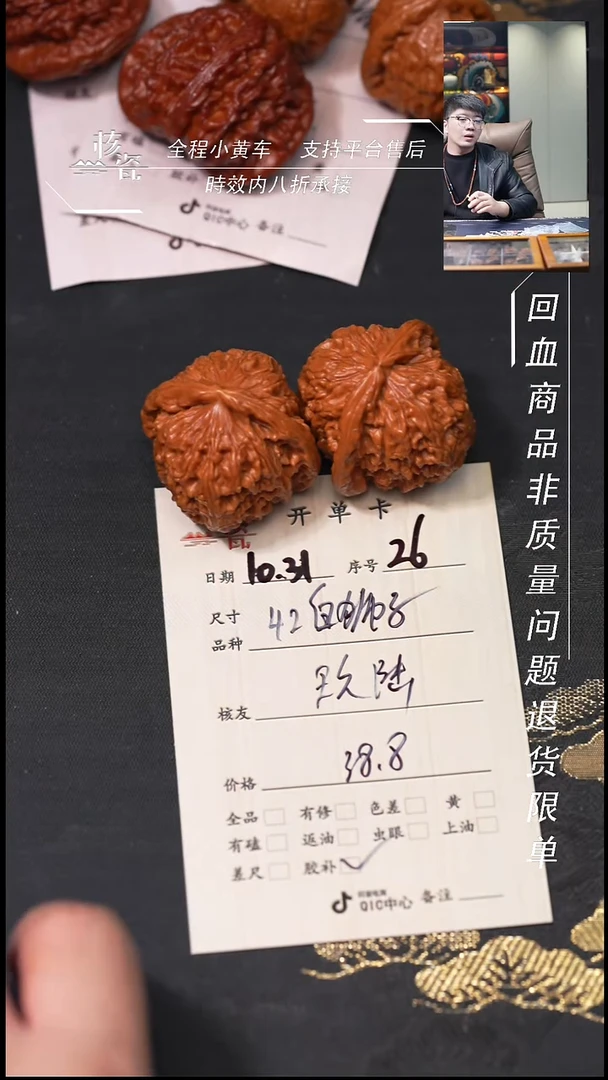 核瓷
全程小黄车 支持平台售后
時效内八折承接
QIC中心 备注
回血商品非质量问题退货限单
开单卡
日期 10.31 序号 26
尺寸
品种 42白狮子
核友
价格 38.8
全品 有修 色差 黄
有磕 返油 虫眼 上油
差尺 胶补
抖音电商
QIC中心 备注